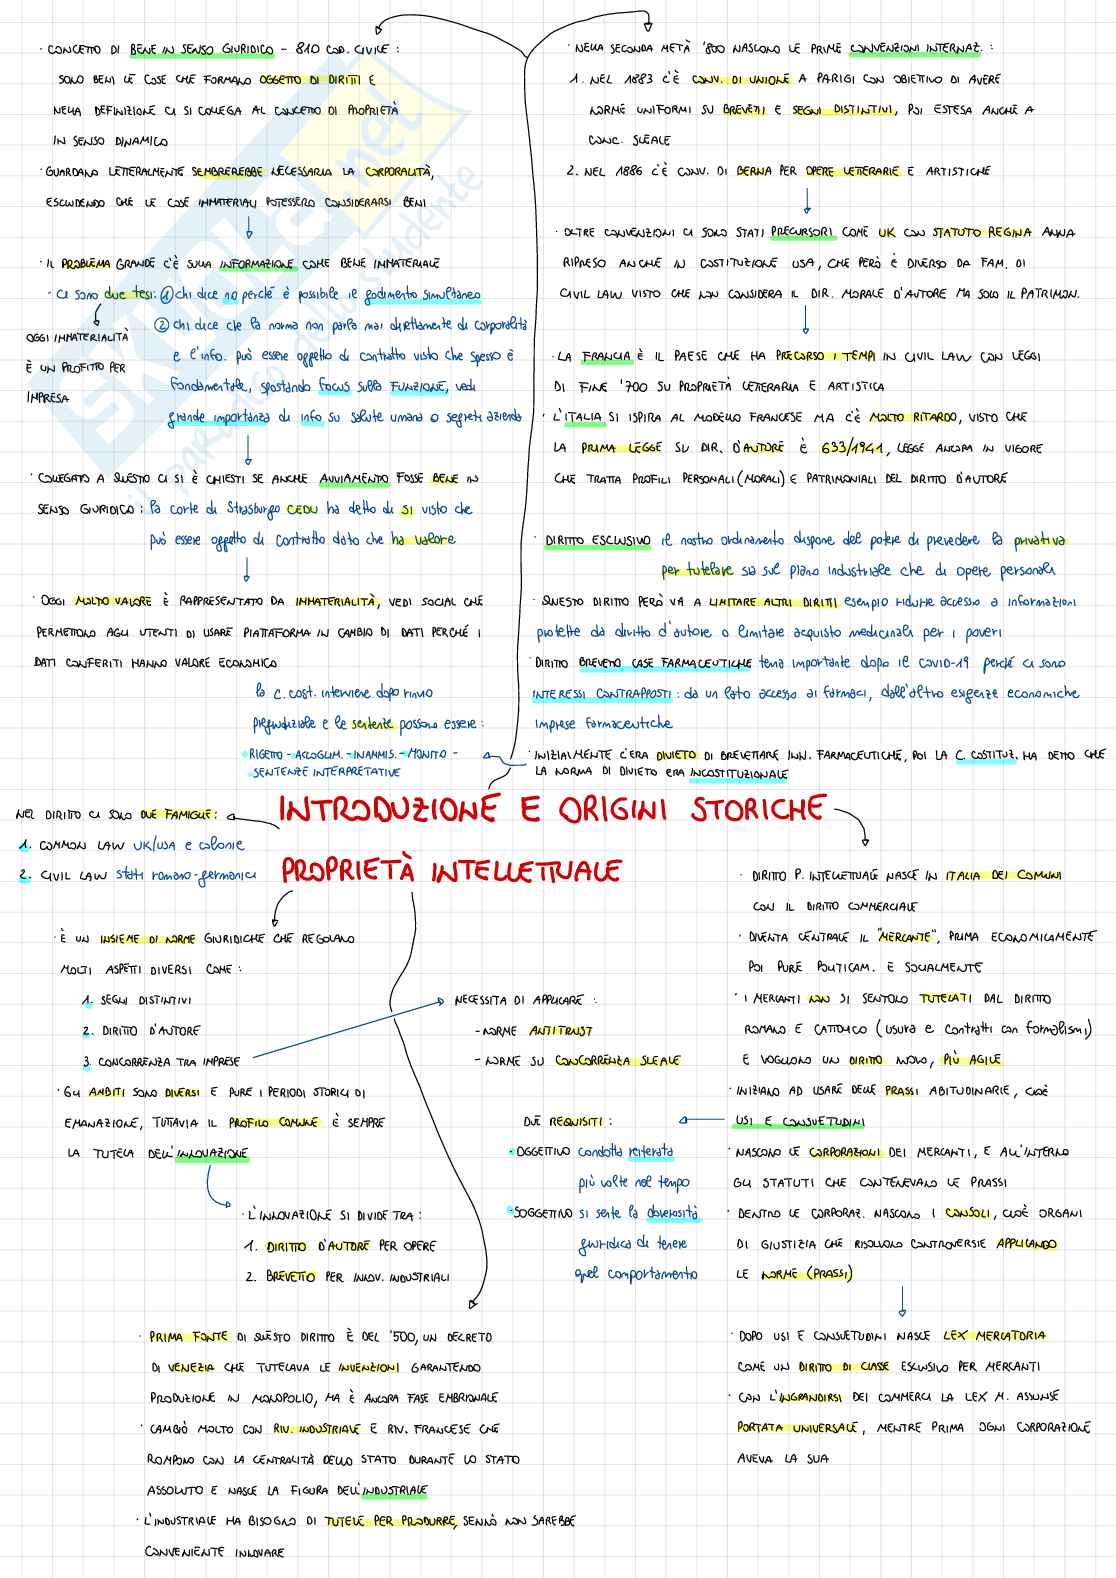 · CONCETTO DI BENE IN SENSO GIURIDICO - 810 COD. CIVILE :
SONO BENI LE COSE CHE FORMANO OGGETTO DI DIRITTI E
NELLA DEFINIZIONE CI SI COLLEGA AL CONCETTO DI PROPRIETÀ
IN SENSO DINAMICO
· GUARDANO LETTERALMENTE SEMBREREBBE NECESSARIA LA CORPORALITÀ,
ESCLUDENDO CHE LE COSE IMMATERIALI POTESSERO CONSIDERARSI BENI
· IL PROBLEMA GRANDE C'È SULLA INFORMAZIONE COME BENE IMMATERIALE
- Ci sono due tesi: 1 chi dice no perché è possibile il godimento simultaneo
2 chi dice che la norma non parla mai direttamente di corporalità
e l'info. può essere oggetto di contratto visto che spesso è
fondamentale, spostando FOCUS sulla FUNZIONE, vedi
grande importanza di info su salute umana o segreti azienda
OGGI IMMATERIALITÀ
È UN PROFITTO PER
IMPRESA
· COLLEGATO A QUESTO CI SI È CHIESTI SE ANCHE AVVIAMENTO FOSSE BENE IN
SENSO GIURIDICO : la corte di Strasburgo CEDU ha detto di SI visto che
può essere oggetto di contratto dato che ha valore
· OGGI MOLTO VALORE È RAPPRESENTATO DA IMMATERIALITÀ, VEDI SOCIAL CHE
PERMETTONO AGLI UTENTI DI USARE PIATTAFORMA IN CAMBIO DI DATI PERCHÉ I
DATI CONFERITI HANNO VALORE ECONOMICO
la C. cost. interviene dopo rinvio
pregiudiziale e le sentenze possono essere :
RIGETTO - ACCOGLIM. - INAMMIS. - MONITO -
SENTENZE INTERPRETATIVE
· NELLA SECONDA METÀ '800 NASCONO LE PRIME CONVENZIONI INTERNAZ. :
1. NEL 1883 C'È CONV. DI UNIONE A PARIGI CON OBIETTIVO DI AVERE
NORME UNIFORMI SU BREVETTI E SEGNI DISTINTIVI, POI ESTESA ANCHE A
CONC. SLEALE
2. NEL 1886 C'È CONV. DI BERNA PER OPERE LETTERARIE E ARTISTICHE
· OLTRE CONVENZIONI CI SONO STATI PRECURSORI COME UK CON STATUTO REGINA ANNA
RIPRESO ANCHE IN COSTITUZIONE USA, CHE PERÒ È DIVERSO DA FAM. DI
CIVIL LAW VISTO CHE NON CONSIDERA IL DIR. MORALE D'AUTORE MA SOLO IL PATRIMON.
· LA FRANCIA È IL PAESE CHE HA PRECORSO I TEMPI IN CIVIL LAW CON LEGGI
DI FINE '700 SU PROPRIETÀ LETTERARIA E ARTISTICA
· L'ITALIA SI ISPIRA AL MODELLO FRANCESE MA C'È MOLTO RITARDO, VISTO CHE
LA PRIMA LEGGE SU DIR. D'AUTORE È 633/1941, LEGGE ANCORA IN VIGORE
CHE TRATTA PROFILI PERSONALI (MORALI) E PATRIMONIALI DEL DIRITTO D'AUTORE
· DIRITTO ESCLUSIVO il nostro ordinamento dispone del potere di prevedere la privativa
per tutelare sia sul piano industriale che di opere personali
· QUESTO DIRITTO PERÒ VA A LIMITARE ALTRI DIRITTI esempio ridurre accesso a informazioni
protette da diritto d'autore o limitare acquisto medicinali per i poveri
· DIRITTO BREVETTO CASE FARMACEUTICHE tema importante dopo il covid-19 perché ci sono
INTERESSI CONTRAPPOSTI : da un lato accesso ai farmaci, dall'altro esigenze economiche
imprese farmaceutiche
· INIZIALMENTE C'ERA DIVIETO DI BREVETTARE INN. FARMACEUTICHE, POI LA C. COSTITUZ. HA DETTO CHE
LA NORMA DI DIVIETO ERA INCOSTITUZIONALE
INTRODUZIONE E ORIGINI STORICHE
PROPRIETÀ INTELLETTUALE
NEL DIRITTO CI SONO DUE FAMIGLIE :
1. COMMON LAW UK/USA e colonie
2. CIVIL LAW stati romano-germanici
· È UN INSIEME DI NORME GIURIDICHE CHE REGOLANO
MOLTI ASPETTI DIVERSI COME :
1. SEGNI DISTINTIVI
2. DIRITTO D'AUTORE
3. CONCORRENZA TRA IMPRESE
· GLI AMBITI SONO DIVERSI E PURE I PERIODI STORICI DI
EMANAZIONE, TUTTAVIA IL PROFILO COMUNE È SEMPRE
LA TUTELA DELL'INNOVAZIONE
· L'INNOVAZIONE SI DIVIDE TRA :
1. DIRITTO D'AUTORE PER OPERE
2. BREVETTO PER INNOV. INDUSTRIALI
NECESSITA DI APPLICARE :
- NORME ANTITRUST
- NORME SU CONCORRENZA SLEALE
DUE REQUISITI :
- OGGETTIVO condotta reiterata
più volte nel tempo
- SOGGETTIVO si sente la doverosità
giuridica di tenere
quel comportamento
· PRIMA FONTE DI QUESTO DIRITTO È DEL '500, UN DECRETO
DI VENEZIA CHE TUTELAVA LE INVENZIONI GARANTENDO
PRODUZIONE IN MONOPOLIO, MA È ANCORA FASE EMBRIONALE
· CAMBIÒ MOLTO CON RIV. INDUSTRIALE E RIV. FRANCESE CHE
ROMPONO CON LA CENTRALITÀ DELLO STATO DURANTE LO STATO
ASSOLUTO E NASCE LA FIGURA DELL'INDUSTRIALE
· L'INDUSTRIALE HA BISOGNO DI TUTELE PER PRODURRE, SENNÒ NON SAREBBE
CONVENIENTE INNOVARE
· DIRITTO P. INTELLETTUALE NASCE IN ITALIA DEI COMUNI
CON IL DIRITTO COMMERCIALE
· DIVENTA CENTRALE IL "MERCANTE", PRIMA ECONOMICAMENTE
POI PURE POLITICAM. E SOCIALMENTE
· I MERCANTI NON SI SENTOLO TUTELATI DAL DIRITTO
ROMANO E CATTOLICO (usura e contratti con formalismi)
E VOGLIONO UN DIRITTO NUOVO, PIÙ AGILE
· INIZIANO AD USARE DELLE PRASSI ABITUDINARIE, CIOÈ
USI E CONSUETUDINI
· NASCONO LE CORPORAZIONI DEI MERCANTI, E ALL'INTERNO
GLI STATUTI CHE CONTENEVANO LE PRASSI
· DENTRO LE CORPORAZ. NASCONO I CONSOLI, CIOÈ ORGANI
DI GIUSTIZIA CHE RISOLVONO CONTROVERSIE APPLICANDO
LE NORME (PRASSI)
· DOPO USI E CONSUETUDINI NASCE LEX MERCATORIA
COME UN DIRITTO DI CLASSE ESCLUSIVO PER MERCANTI
· CON L'INGRANDIRSI DEI COMMERCI LA LEX M. ASSUNSE
PORTATA UNIVERSALE, MENTRE PRIMA OGNI CORPORAZIONE
AVEVA LA SUA
SKUOLA.net
il paradiso dello studente